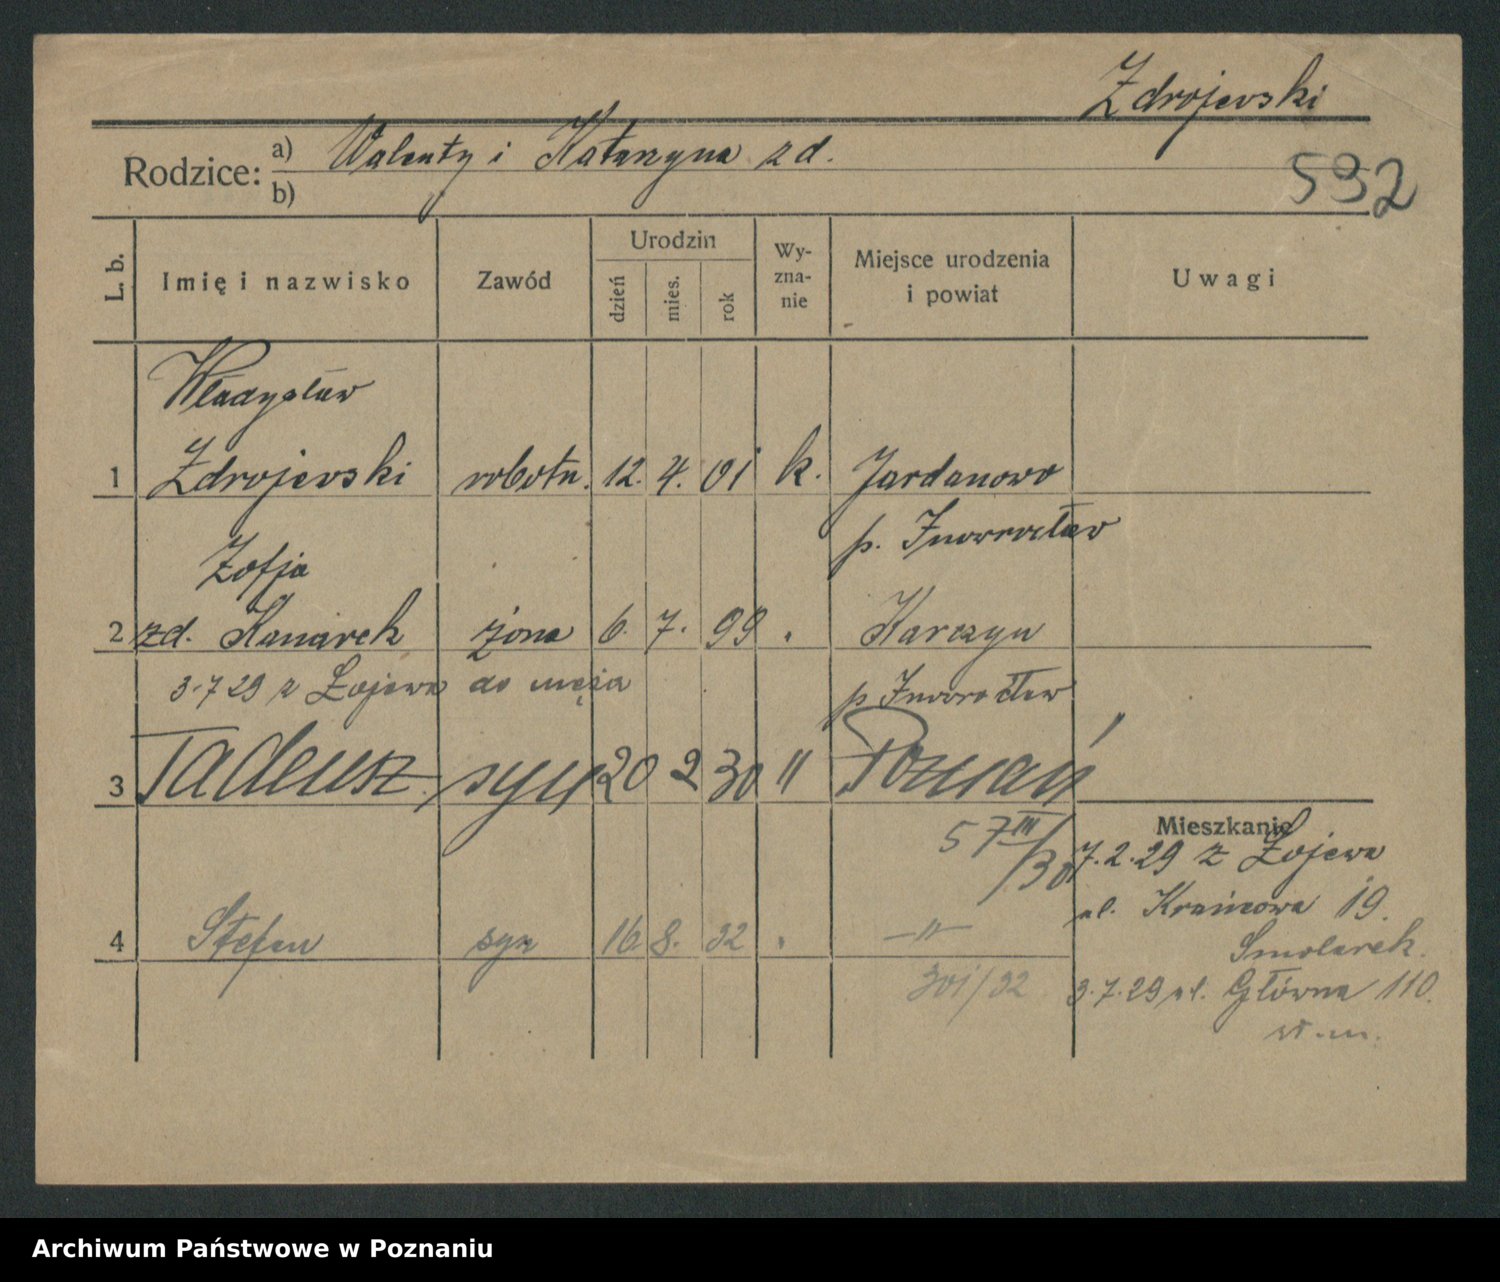 Zdrojevski
Rodzice: a) Walenty i Katarzyna zd.
b)
532
L. b. Imię i nazwisko Zawód Urodzin dzień mies. rok Wy-zna-nie Miejsce urodzenia i powiat Uwagi
Władysław
1 Zdrojevski robotn. 12. 4. 01 k. Jardanowo
p. Inowrocław
Zofja
2 zd. Kanarek żona 6. 7. 99 " Karczyn
3.7 29 z Łojewa do męża p Inowrocław
3 Tadeusz syn 20 2 30 " Poznań
57 III/30
Mieszkanie
7.2.29 z Łojewa
ul. Krańcowa 19.
4 Stefan syn 16 8. 32 " —"—
Smolarek.
301/32
3.7.29 ul. Główna 110.